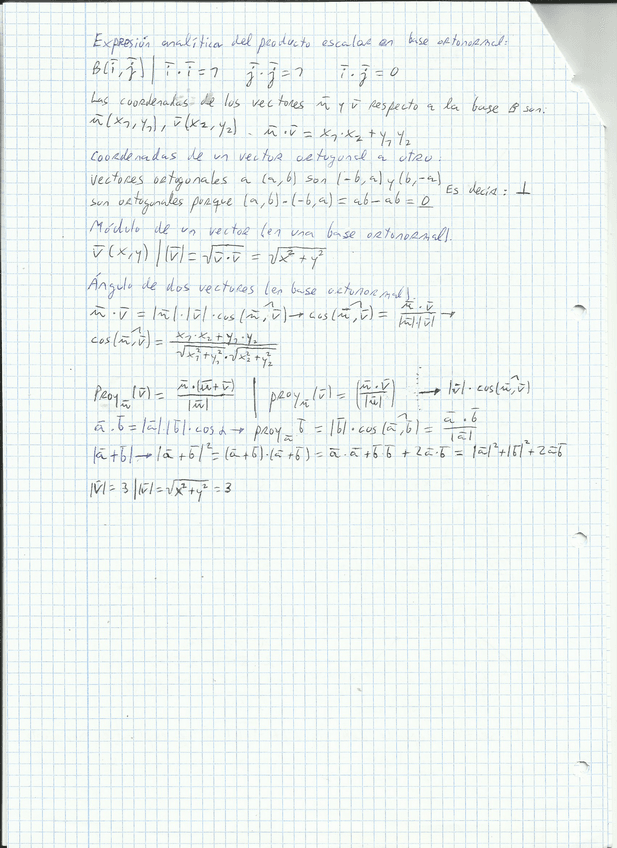 Expresión analítica del producto escalar en base ortonormal:
B(i̅, j̅) | i̅ · i̅ = 1   j̅ · j̅ = 1   i̅ · j̅ = 0
Las coordenadas de los vectores u̅ y v̅ respecto a la base B son:
u̅ (x₁, y₁), v̅ (x₂, y₂). u̅ · v̅ = x₁ · x₂ + y₁ y₂
Coordenadas de un vector ortogonal a otro:
vectores ortogonales a (a, b) son (-b, a) y (b, -a)
son ortogonales porque (a, b) - (-b, a) = ab - ab = 0   Es decir: ⊥
Módulo de un vector (en una base ortonormal).
v̅ (x, y) | |v̅| = √(v̅ · v̅) = √(x² + y²)
Ángulo de dos vectores (en base octonormal).
u̅ · v̅ = |u̅| · |v̅| · cos (u̅, v̅) → cos (u̅, v̅) = (u̅ · v̅)/(|u̅| · |v̅|) →
cos (u̅, v̅) = (x₁ · x₂ + y₁ · y₂)/(√(x₁² + y₁²) · √(x₂² + y₂²))
Proy u̅ (v̅) = (u̅ · (u̅ + v̅))/|u̅| | proy u̅ (v̅) = ((u̅ · v̅)/|u̅|) → |v̅| · cos (u̅, v̅)
a̅ · b̅ = |a̅| |b̅| · cos α → proy u̅ b̅ = |b̅| · cos (a̅, b̅) = (a̅ · b̅)/|a̅|
|a̅ + b̅| → |a̅ + b̅|² = (a̅ + b̅) · (a̅ + b̅) = a̅ · a̅ + b̅ · b̅ + 2a̅ · b̅ = |a̅|² + |b̅|² + 2a̅b̅
|v̅| = 3 | |v̅| = √(x² + y²) = 3